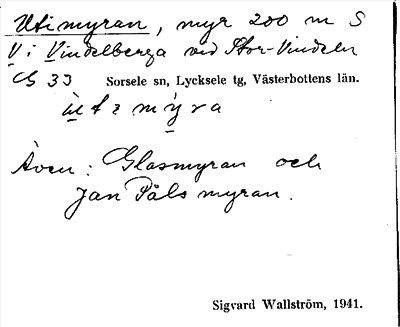 Utimyran, myr 200 m S
V i Vindelberga vid Stor-Vindeln
C5 33 Sorsele sn, Lycksele tg, Västerbottens län.
Även: Glasmyran och
Jan Påls myran.
Sigvard Wallström, 1941.